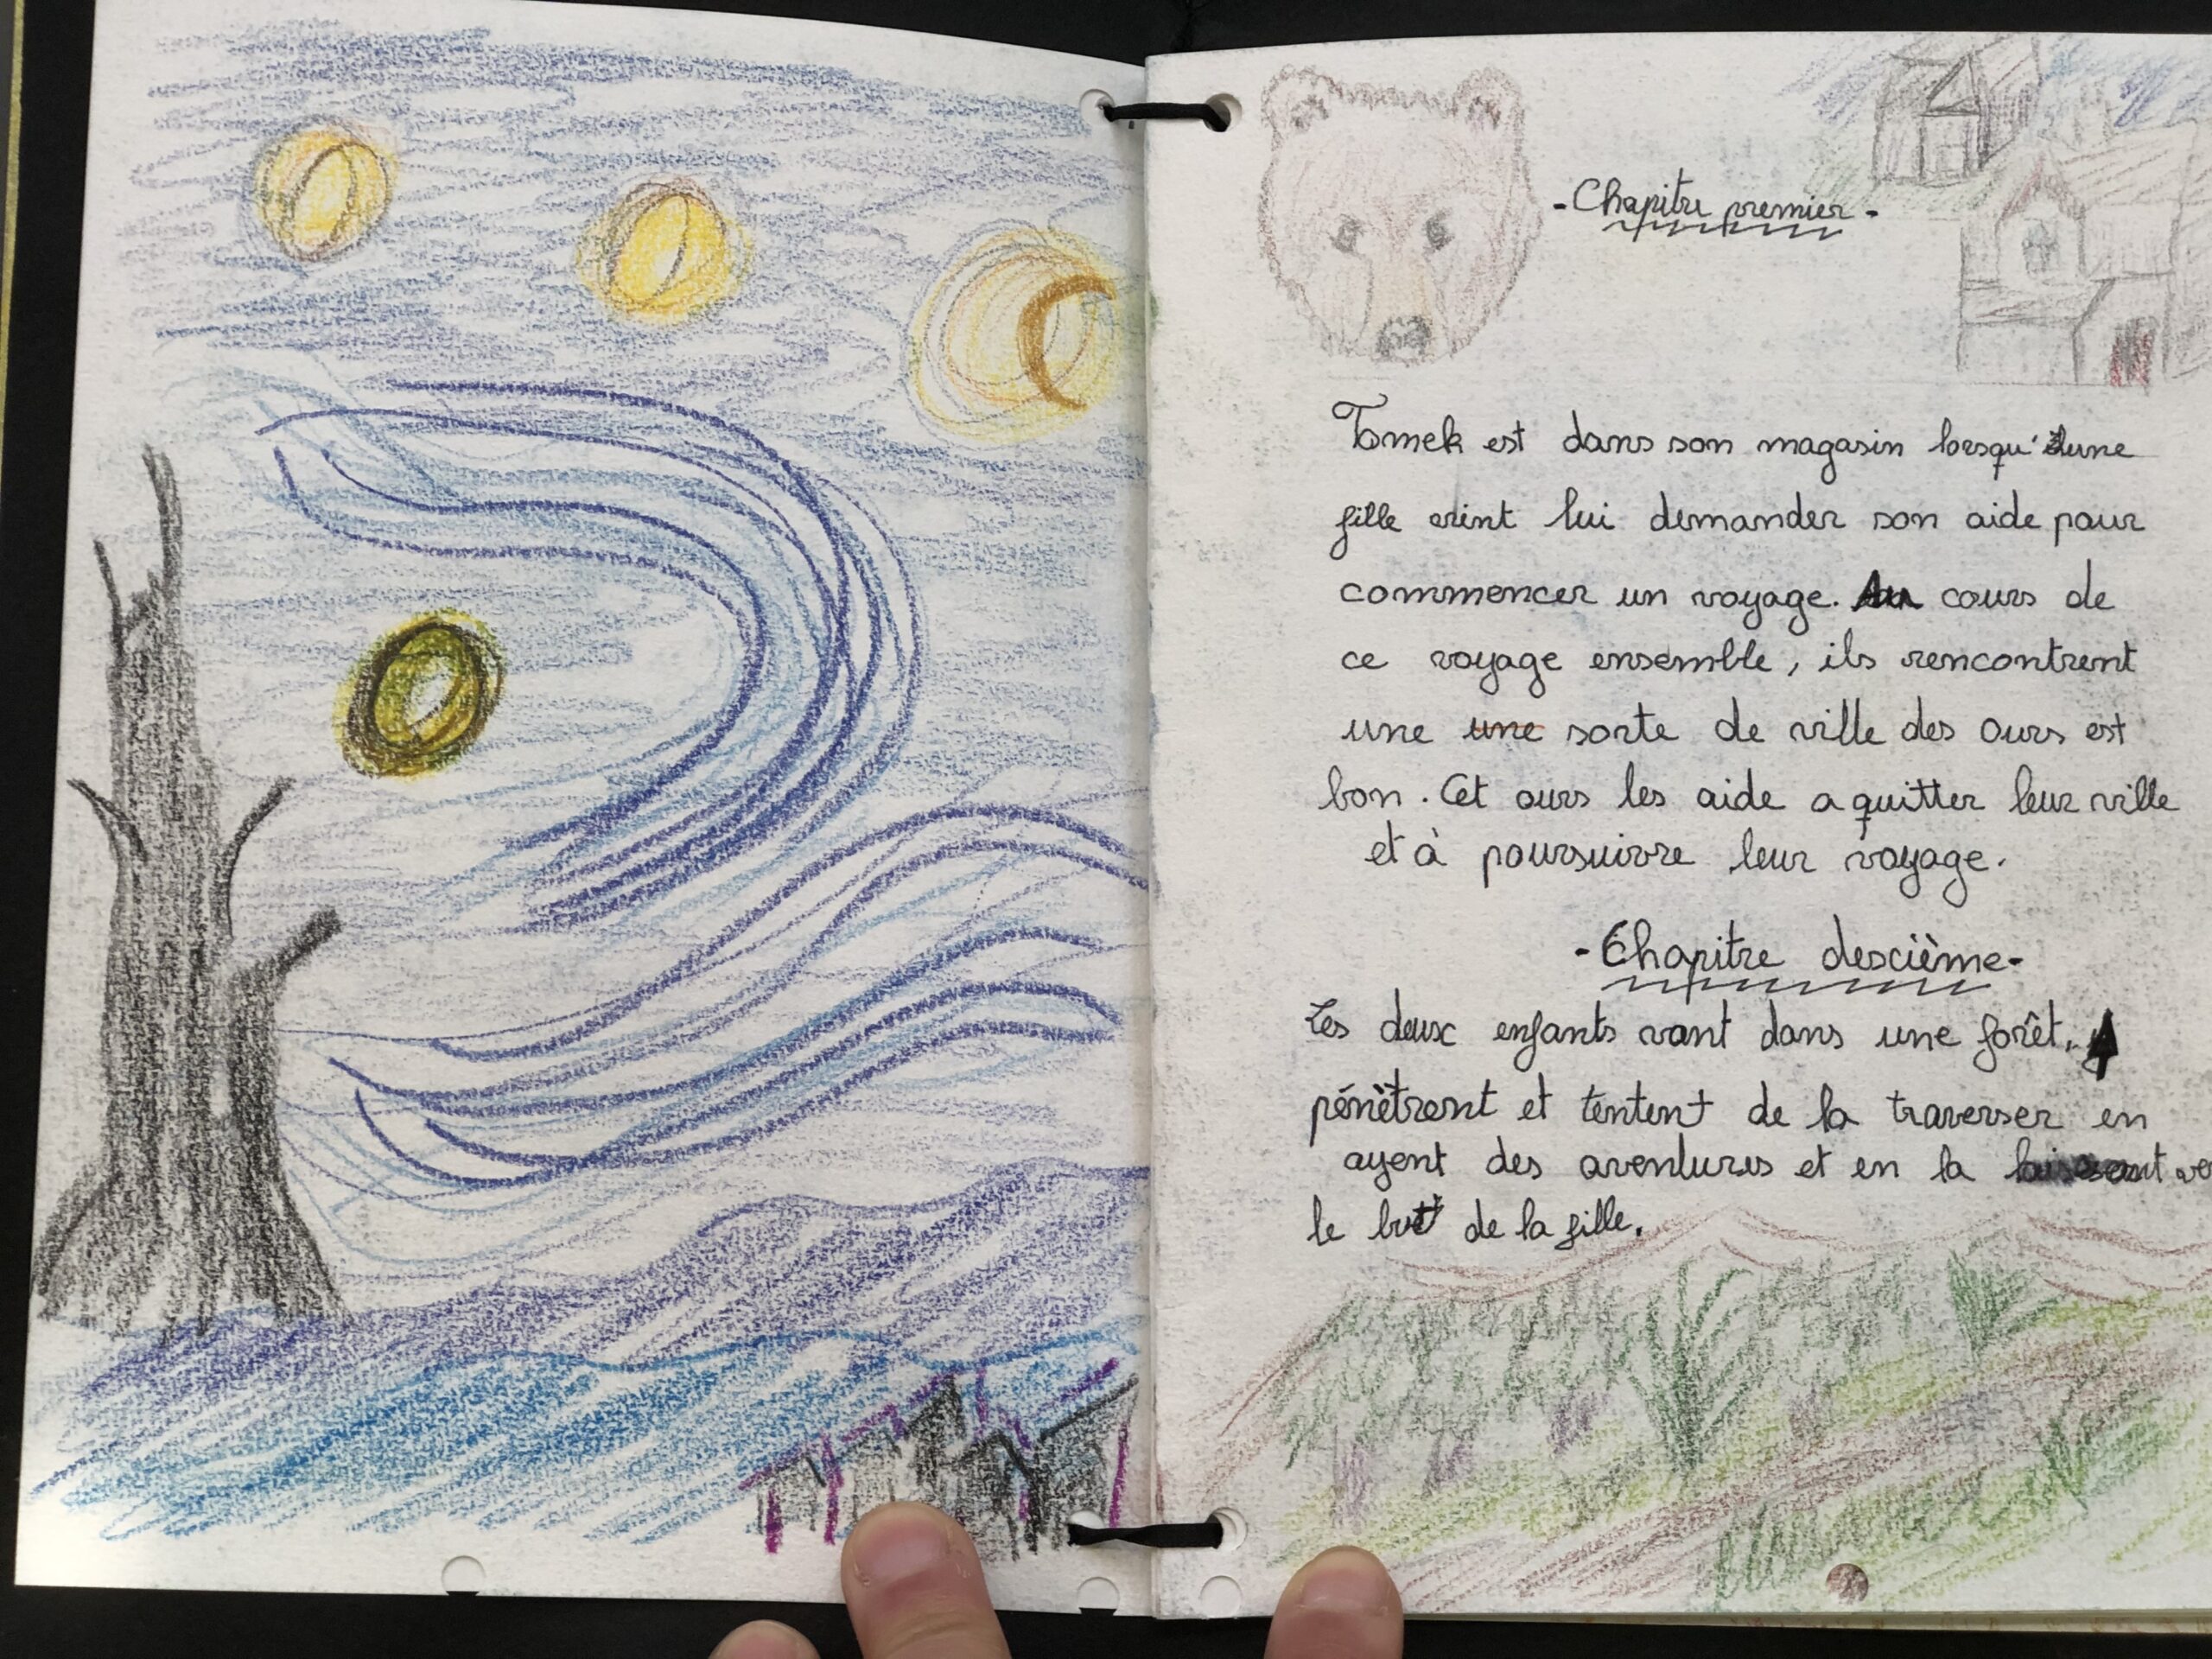 - Chapitre premier -
Tomek est dans son magasin lorsqu'une
fille vint lui demander son aide pour
commencer un voyage. Au cours de
ce voyage ensemble, ils rencontrent
une une sorte de ville des ours est
bon. Cet ours les aide a quitter leur ville
et à poursuivre leur voyage.
- Chapitre descième -
Les deux enfants vont dans une forêt,
pénètrent et tentent de la traverser en
ayent des aventures et en la
le but de la fille.